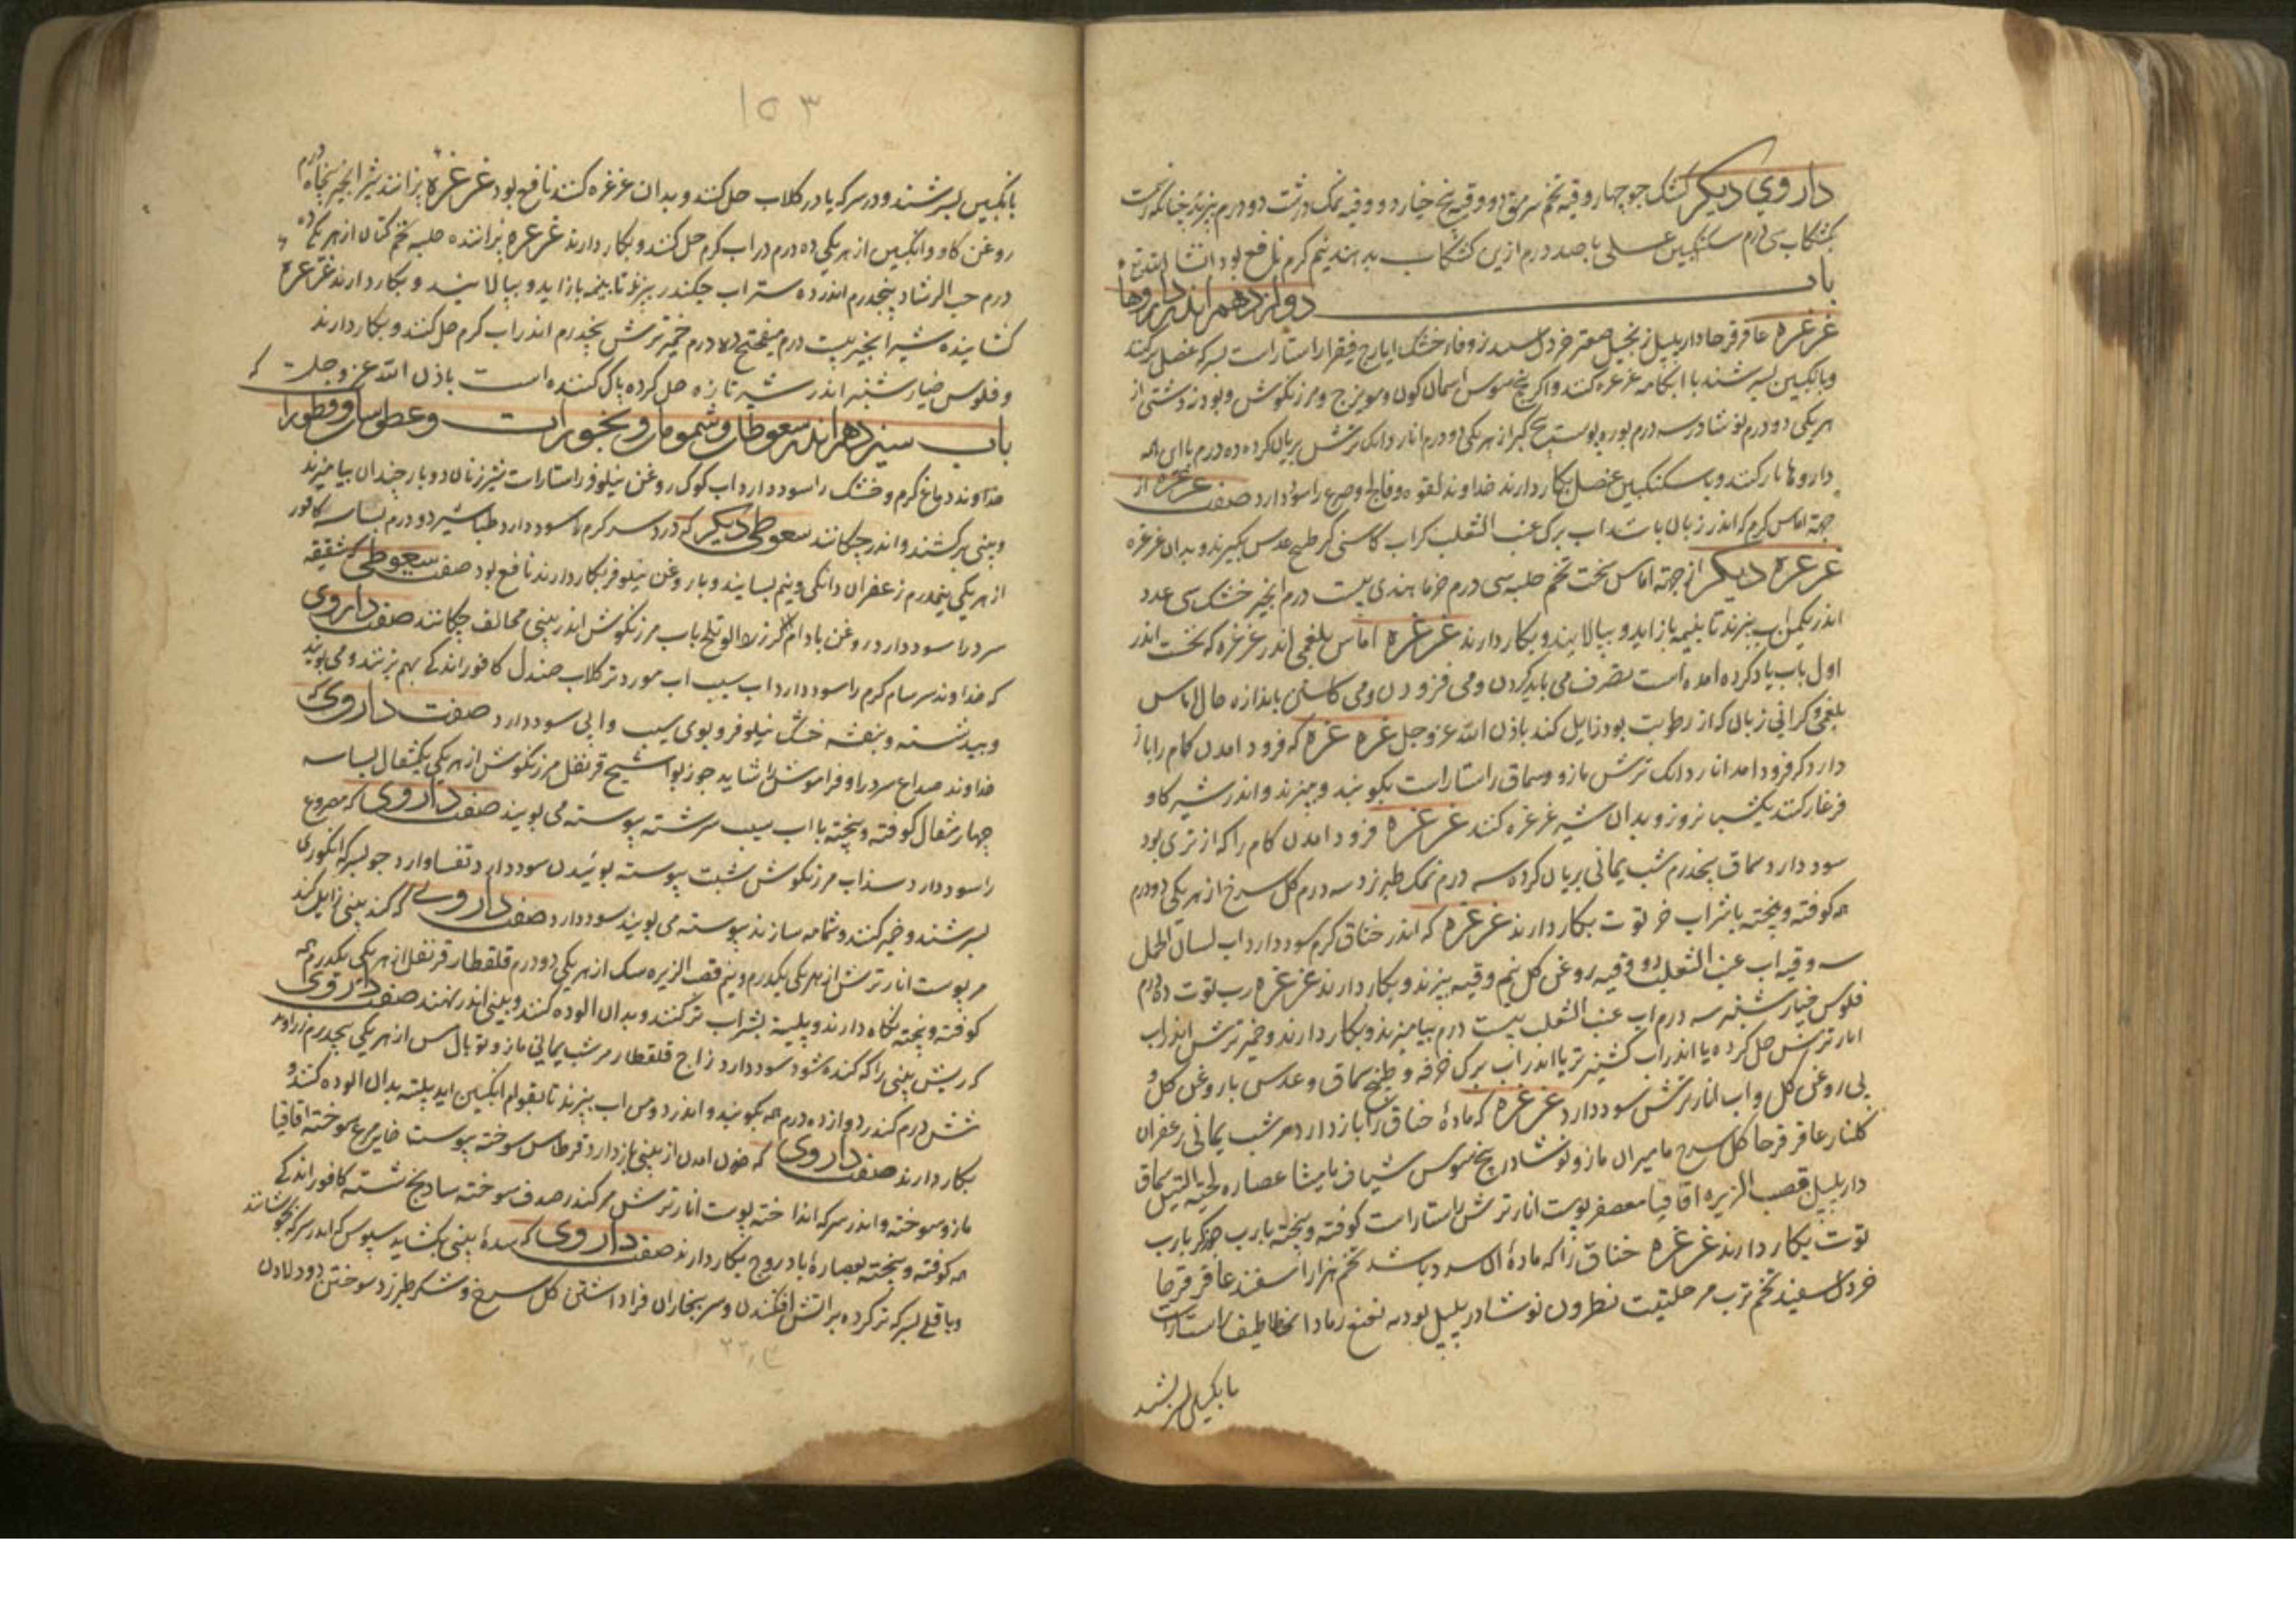 داروی دیکر کشک جو چهار وقیه تخم سرمق دو وقیه بیخ خیار دو وقیه نمک درشت دو درم بپزند چنانکه رسمست
کشکاب سی درم سکنکبین عسلی باصد درم ازین کشکاب بدهند نیم کرم نافع بود انشا الله تع
باب دوازدهم اندر داروهاء
غرغره عاقرقرحا دارپلپل زنجبیل صعتر خردل اسپید زوفاء خشک ایارج فیقرا راستاراست بسرکه عنصل ترکنند
وبانکبین بسرشند با ابکامه غرغره کنند واکر بیخ سوس اسمان کون ومویزج ومرزنکوش وبودنه دشتی از
هریکی دو درم نوشادر سه درم بوره پوست بیخ کبر از هریکی دو درم انار دانک ترش بریان کرده ده درم با این همه
داروها یار کنند وبا سکنکبین عنصل بکار دارند خداوند لقوه وفالج وصرع را سود دارد صفت غرغره از
جهة اماس کرم که اندر زبان باشد اب برک عنب الثعلب کر اب کاسنی کر طبیخ عدس بکیرند وبدان غرغره
غرغره دیکر از جهة اماس سخت تخم حلبه سی درم خرما هندی بیست درم انجیر خشک سی عدد
اندر یکمن اب بپزند تا بنیمه بازاید وبپالایند وبکار دارند غرغره اماس بلغمی اندر غرغره که نخست اندر
اول باب یاد کرده امده است تصرف می باید کردن ومی فزودن ومی کاستن باندازه حال اماس
بلغمی وکرانی زبان که از رطوبت بود زایل کند باذن الله عز وجل غره غره که فرود امدن کام را باز
دارد کر فرود امد انار دانک ترش مازو وسماق راستاراست بکوبند وبپزند واندر شیر کاو
فرغار کنند یکشب نروز وبدان شیر غرغره کنند غرغره فرود امدن کام را که از تری بود
سود دارد سماق پنجدرم شب یمانی بریان کرده سه درم نمک طبرزد سه درم کل سرخ از هریکی دو درم
همه کوفته وبیخته باشراب خر توت بکار دارند غرغره که اندر خناق کرم سود دارد اب لسان الحمل
سه وقیه اب عنب الثعلب دو وقیه روغن کل نیم وقیه بپزند وبکار دارند غرغره رب توت ده درم
فلوس خیارشنبر سه درم اب عنب الثعلب بیست درم بیامیزند وبکار دارند وخمیر ترش اندر اب
انار ترش حل کرده یا اندر اب کشنیز تر یا اندر اب برک خرفه وطبیخ سماق وعدس با روغن کل و
بی روغن کل واب انار ترش سود دارد غرغره که ماده خناق را باز دارد مر شب یمانی زعفران
کلنار عاقرقرحا کل سرخ مامیران مازو نوشادر بیخ سوس شیاف مامیثا عصاره لحیة التیس سماق
دارپلپل قصب الزریره اقاقیا معصفر پوست انار ترش راستاراست کوفته وبیخته بارب جوز کر بارب
توت بکار دارند غرغره خناق را که ماده ان سرد باشد تخم هزار اسفند عاقرقرحا
خردل سفید تخم ترب مر حلتیت نطرون نوشادر پلپل بودنه نعنع رماد الخطاطیف راستاراست
بانکبین بسرشند
۱۵۳
بانکبین بسرشند ودر سرکه یا در کلاب حل کنند وبدان غرغره کنند نافع بود غرغره پزانند شیر انجیر پنجاه درم
روغن کاو وانکبین از هریکی ده درم در اب کرم حل کنند وبکار دارند غرغره پزاننده حلبه تخم کتان از هریکی ده
درم حب الرشاد پنجدرم اندر ده ستر اب چکندر بپزند تا بنیمه بازاید وبپالایند وبکار دارند غرغره
کشاینده شیر انجیر بیست درم میفختج ده درم خمیر ترش پنجدرم اندر اب کرم حل کنند وبکار دارند
وفلوس خیارشنبر اندر شیر تازه حل کرده پاک کننده است باذن الله عز وجلت
باب سیزدهم اندر سعوطات وشمومات وبخورات وعطوسات وقطورا
خداوند دماغ کرم وخشک را سود دارد اب کوک روغن نیلوفر راستاراست شیر زنان دوبار چندان بیامیزند
وببینی برکشند واندر چکانند سعوطی دیکر که درد سر کرم را سود دارد طباشیر دو درم بسباسه کافور
از هریکی نیمدرم زعفران دانکی ونیم بسایند وبا روغن نیلوفر بکار دارند نافع بود صفت سعوطی که شقیقه
سرد را سود دارد روغن بادام کر زرد الو تلخ باب مرزنکوش اندر بینی مخالف چکانند صفت داروی
که خداوند سرسام کرم را سود دارد اب سیب اب مورد تر کلاب صندل کافور اندکی بهم بزنند ومی بویند
وبید شسته وبنفشه خشک نیلوفر وبوی سیب وابی سود دارد صفت داروی که
خداوند صداع سرد را وفراموشی را شاید جوزبوا شیح قرنفل مرزنکوش از هریکی یکمثقال بسباسه
چهار مثقال کوفته وبیخته با اب سیب سرشته پیوسته می بویند صفت داروی که مصروع
را سود دارد سذاب مرزنکوش شبت پیوسته بوئیدن سود دارد وتفسا وارد جو بسرکه انکوری
بسرشند وخمیر کنند وشمامه سازند پیوسته می بویند سود دارد صفت داروی که کند بینی زایل کند
مر پوست انار ترش از هریکی یکدرم ونیم قصب الزریره سک از هریکی دو درم قلقطار قرنفل از هریکی یکدرم همه
کوفته وبیخته نکاه دارند وپلیته بشراب تر کنند وبدان الوده کنند وببینی اندر نهند صفت داروی
که ریش بینی را که کنده شود سود دارد زاج قلقطار مر شب یمانی مازو توبال مس از هریکی پنجدرم زراوند
شش درم کندر دوازده درم همه بکوبند واندر دو من اب بپزند تا بقوام انکبین اید پلیته بدان الوده کنند و
بکار دارند صفت داروی که خون امدن از بینی باز دارد قرطاس سوخته پوست خایه مرغ سوخته اقاقیا
مازو سوخته واندر سرکه انداخته پوست انار ترش مر کندر صدف سوخته سادنج شسته کافور اندکی
همه کوفته وبیخته بعصارة بادروج بکار دارند صفت داروی که سده بینی بکشاید سپوس که اندر سرکه بجوشانند
وباقلی بسرکه تر کرده براتش افکندن وسر ببخار ان فراداشتن کل سرخ وشکر طبرزد سوختن ودود لادن